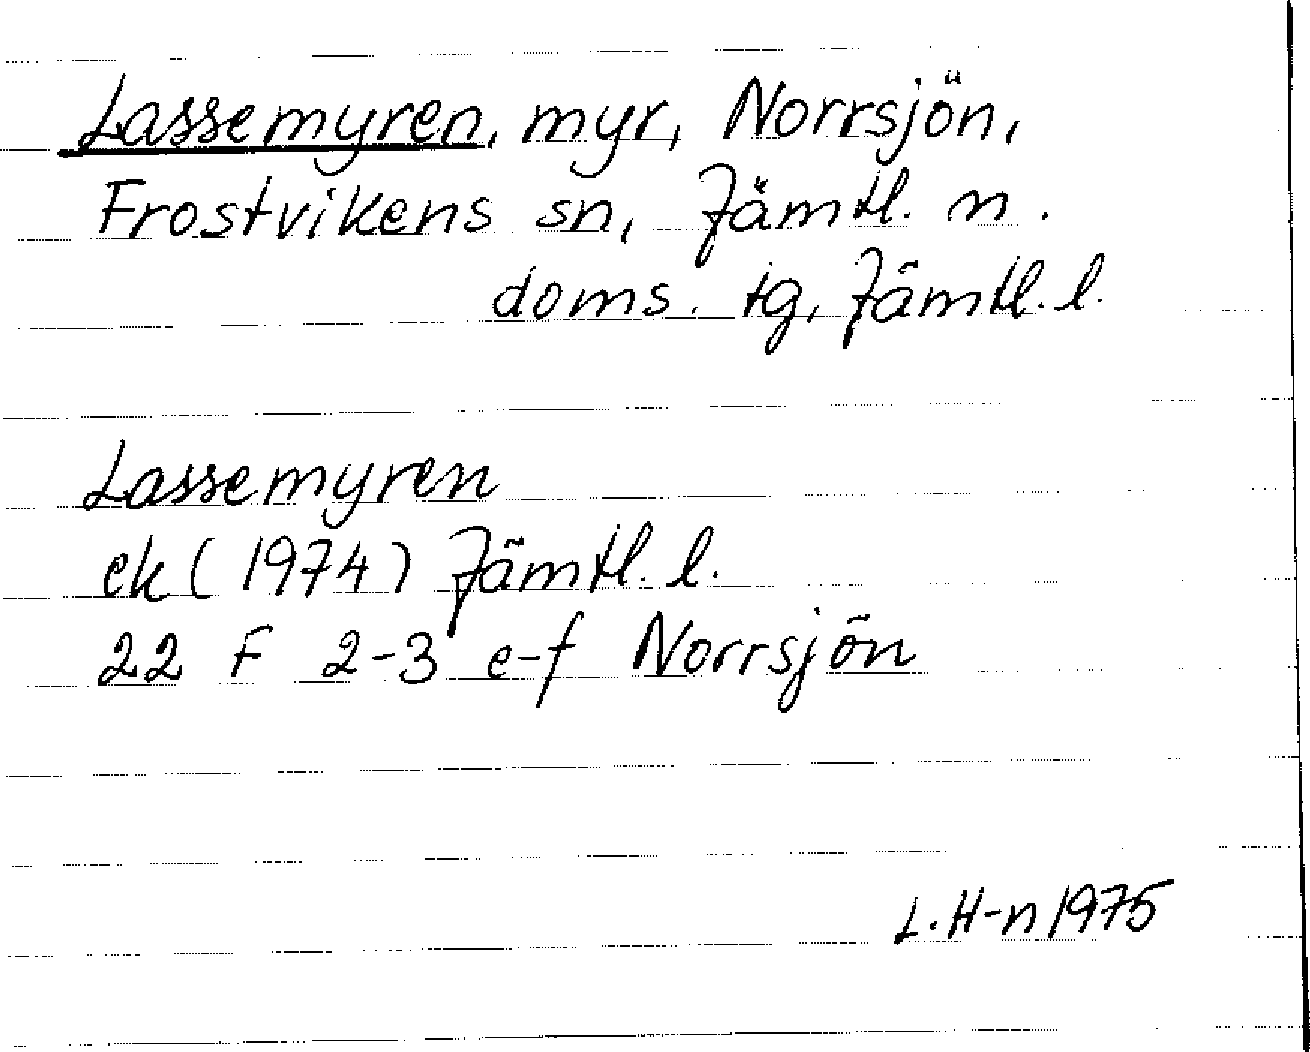 Lassemyren, myr, Norrsjön,
Frostvikens sn, Jämtl. n.
doms. tg, Jämtl. l.
Lassemyren
ek (1974) Jämtl. l.
22 F 2-3 e-f Norrsjön
L. H-n 1975